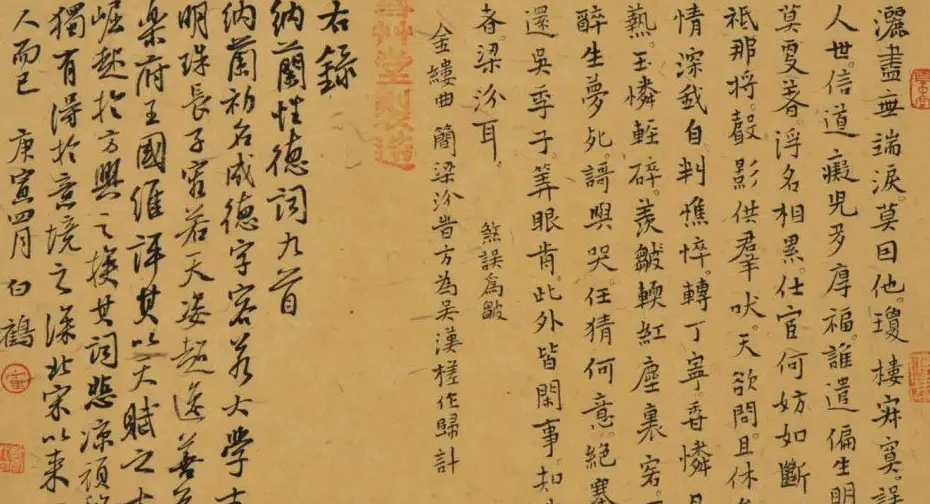 灑盡無端淚。莫因他。瓊樓寂寞。誤
人世。信道癡兒多厚福。誰遣偏生明
莫更著。浮名相累。仕宦何妨如斷
祇那將。聲影供羣吠。天欲問。且休
情深我自判憔悴。轉丁寧。香憐易
熱。玉憐輕碎。羨皺輭紅塵裏客。一
醉生夢死。謌與哭。任猜何意。絕塞
還吳季子。算眼歬。此外皆閒事。知
者。梁汾耳。 煞誤為皺
金縷曲 簡梁汾旹方為吳漢槎作歸計
右錄
納蘭性德詞九首
納蘭初名成德字容若大學士
明珠長子容若天姿超逸善
樂府王國維評其以天賦之才
崛起於方興之族其詞悲涼頑
獨有得於意境之深北宋以來
人而已 庚寅四月 白鶴